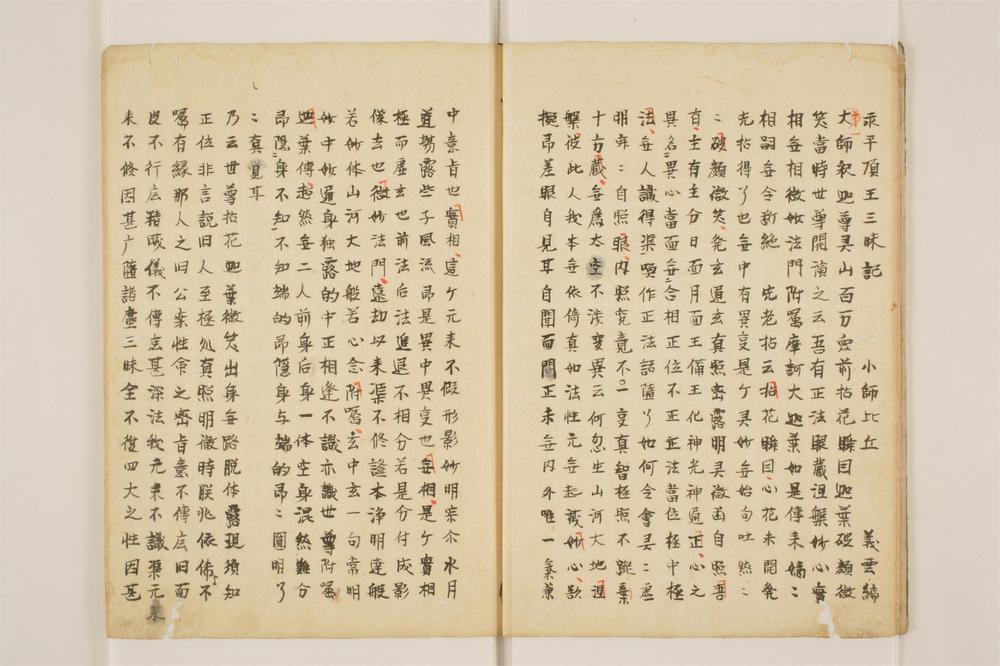 永平頂王三昧記　小師比丘　義雲編
大師釈迦尊灵山百万衆前拈花瞬目迦葉破顔微
笑當時世尊開演之云吾有正法眼蔵涅槃妙心實
相無相微妙法門附属摩訶大迦葉如是傳来嫡〻
相嗣無令断絶　先老拈云拈花瞬目心花未開発
先拈得了也無中有異享是个灵妙無始句吐然〻
〻破顔微笑発玄道玄真照密露明灵微函自照吾
有主有主分日面月面王備王化神光神通正心之
異名異心當面無合相正位不正正法當位極中極
法無人識得渠喚作正法話隨了如何令會灵〻虚
明弈〻自照眼内照究竟不一享真智極照不蹤棄
十方蔵無為太空不渉変異云何忽生山河大地涅
槃彼此人我本無依倚真如法性元無起蔵妙心歇
擬昂差照自見耳自聞面聞正未無内外唯一兼兼
中意旨也實相這个元来不假形影妙明宗介水月
道場露些子風流昂是異中異享也無相是个實相
極而虚玄也前法后法進退不相分若是分付成影
像去也微妙法門遠却以来渠不修證本浄明達般
若妙体山河大地般若心念附属玄中玄一句常明
妙中妙通身独露的中正相逢不識亦識世尊附属
迦葉傳超然無二人前身后身一体空身混然難分
昂隠身不知〻不知端的昂隠身与端的昂〻圓明了
〻真覚耳
乃云世尊拈花迦葉微笑出身無路脱体露現須知
正位非言説旧人至極処真照明徹時朕兆依俙不
属有縁那人之旧公案性命之密旨意不傳底旧面
皮不行底猪咬儀不傳底甚深法我元来不識渠元来
未不修因甚广薩諸塵三昧全不復四大之性因甚